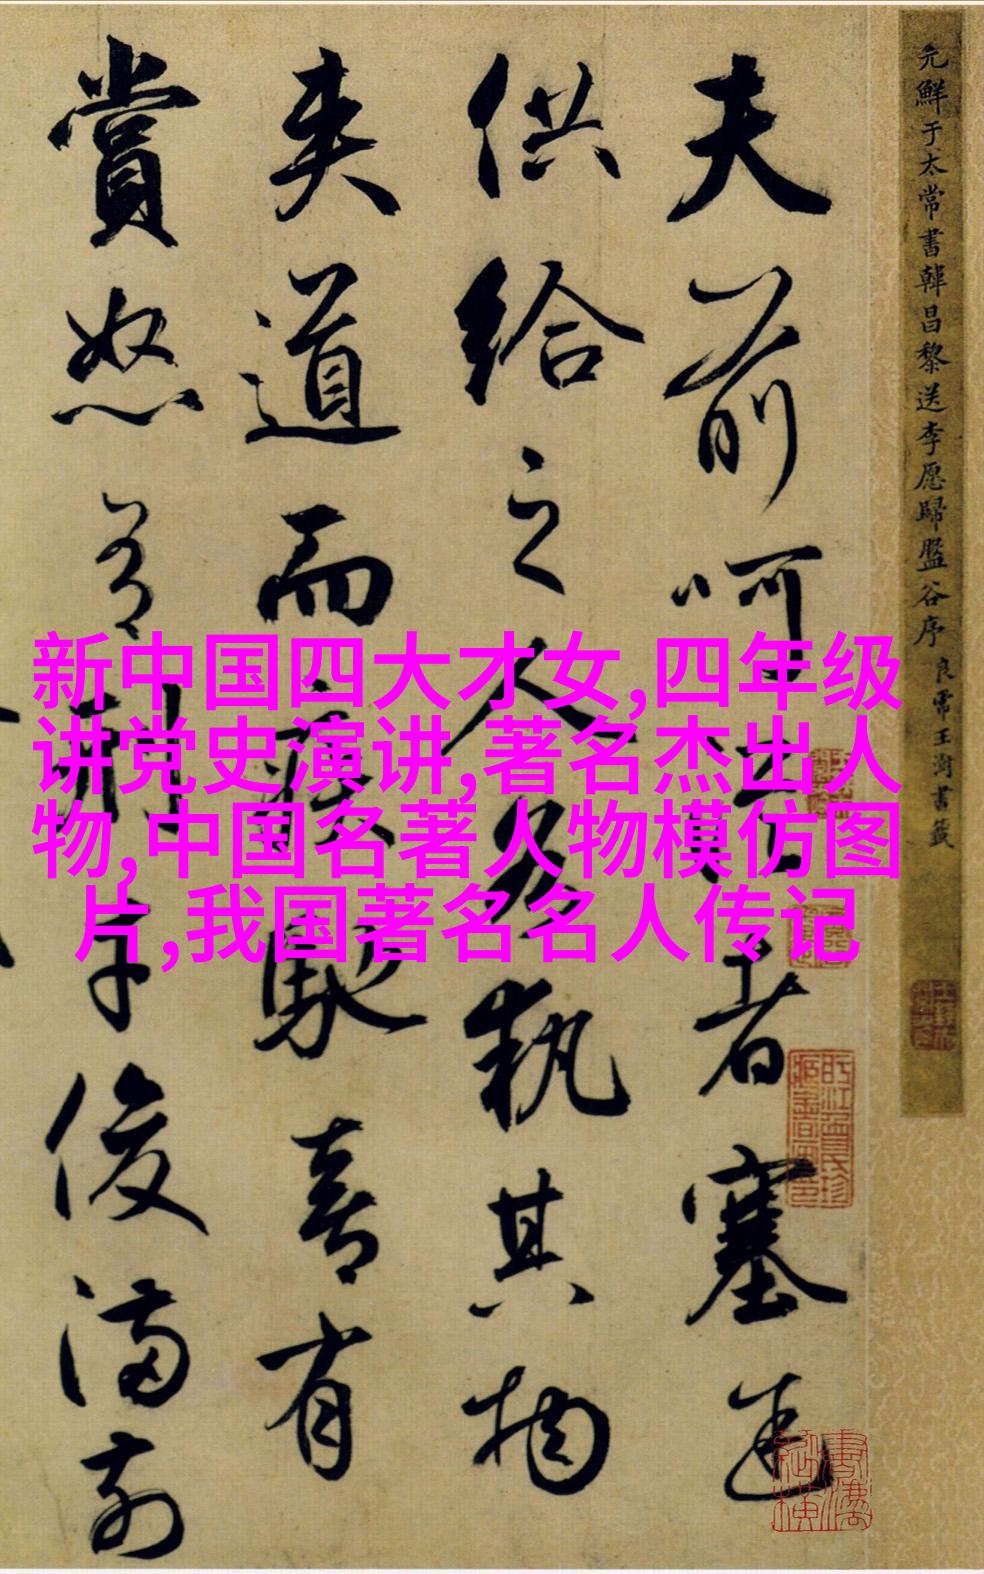 元鮮于太常書韓昌黎送李愿歸盤谷序 良常王澍書籤
夫前呵從者塞途
供給之人各執其物
夾道而疾馳喜有
賞怒有刑才俊滿前
新中国四大才女,四年级
讲党史演讲,著名杰出人
物,中国名著人物模仿图
片,我国著名名人传记